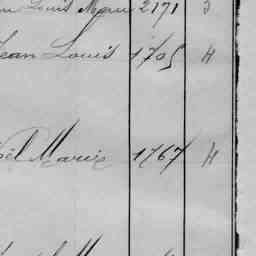 Louis Marie 2171 3
Jean Louis 1705 H
oël Marie 1767 H